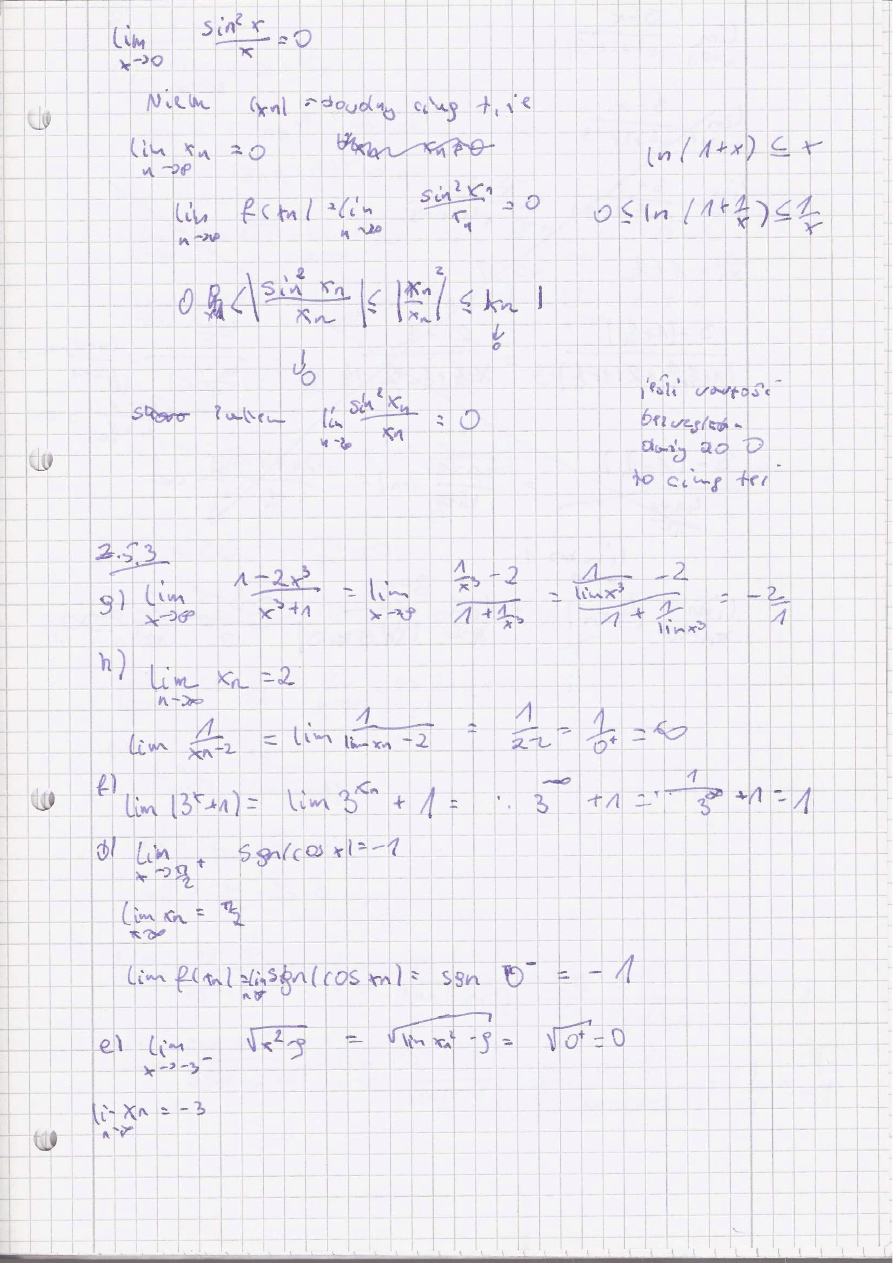 lim x→0 sin²x/x = 0
Niech (xn) - dowolny ciąg t, że
lim n→∞ xn = 0
ln(1+x) ≤ x
lim n→∞ f(xn) = lim n→∞ sin²xn/xn = 0
0 ≤ ln(1+1/x) ≤ 1/x
0 < |sin²xn/xn| ≤ |xn²/xn| ≤ |xn|
↓0 ↓0
zatem lim n→∞ sin²xn/xn = 0
jeśli wartości
bezwzględn
dąży do 0
to ciąg też
2.5.3
g) lim x→∞ (1-2x³)/(x³+1) = lim x→∞ (1/x³ - 2)/(1 + 1/x³) = (1/lim x³ - 2)/(1 + 1/lim x³) = -2/1
h) lim n→∞ xn = 2
lim 1/(xn-2) = lim 1/(lim xn - 2) = 1/(2-2) = 1/0⁺ = ∞
f) lim (3ˣ+1) = lim 3^xn + 1 = 3^-∞ + 1 = 1/3^∞ + 1 = 1
lim x→π/2⁺ sgn(cos x) = -1
lim xn = π/2
lim f(xn) = lim n→∞ sgn(cos xn) = sgn 0⁻ = -1
e) lim x→-3⁻ √(x²-9) = √(lim xn² - 9) = √0⁺ = 0
lim n→∞ xn = -3